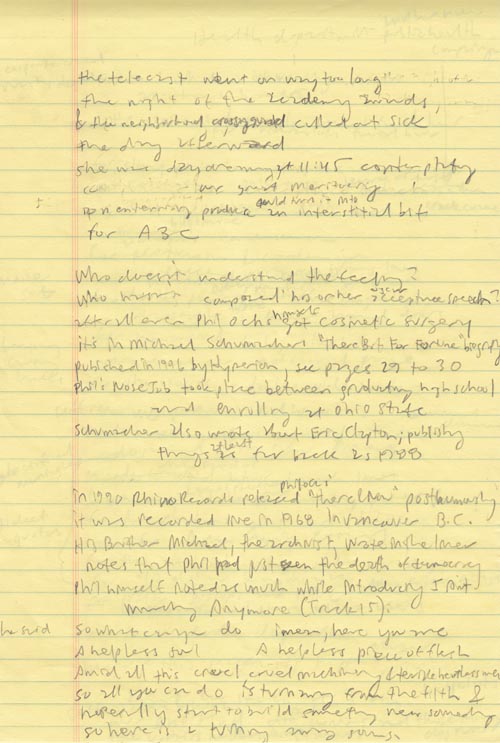 the telecast went on way too long
the night of the academy awards,
& the neighborhood crossing guard called out sick
the day afterward
she was daydreaming at 11:45 contemplating
could turn it into
an entertaining produce an interstitial bit
for ABC
Who doesn't understand the feeling?
Who hasn't composed his or her oscar acceptance speech?
after all even Phil Ochs himself got cosmetic surgery
its in Michael Schumacher's "There But For Fortune" biography
published in 1996 by Hyperion, see pages 29 to 30
Phil's Nose Job took place between graduating high school
and enrolling at Ohio State
Schumacher also wrote about Eric Clapton; publishing
things at least as far back as 1988
phil ochs'
in 1990 Rhino Records released "There & Now" posthumously
it was recorded live in 1968 in Vancouver B.C.
His Brother Michael, the archivist, wrote in the liner
notes that Phil had just seen the death of democracy
Phil himself noted as much while introducing I Ain't
Marching Anymore (Track 15).
he said So what can you do I mean, here you are
A helpless soul A helpless piece of flesh
Amid all this cruel cruel machinery & terrible heartless men
so all you can do is turn away from the filth &
hopefully start to build something new someday
so here is a turning away song.